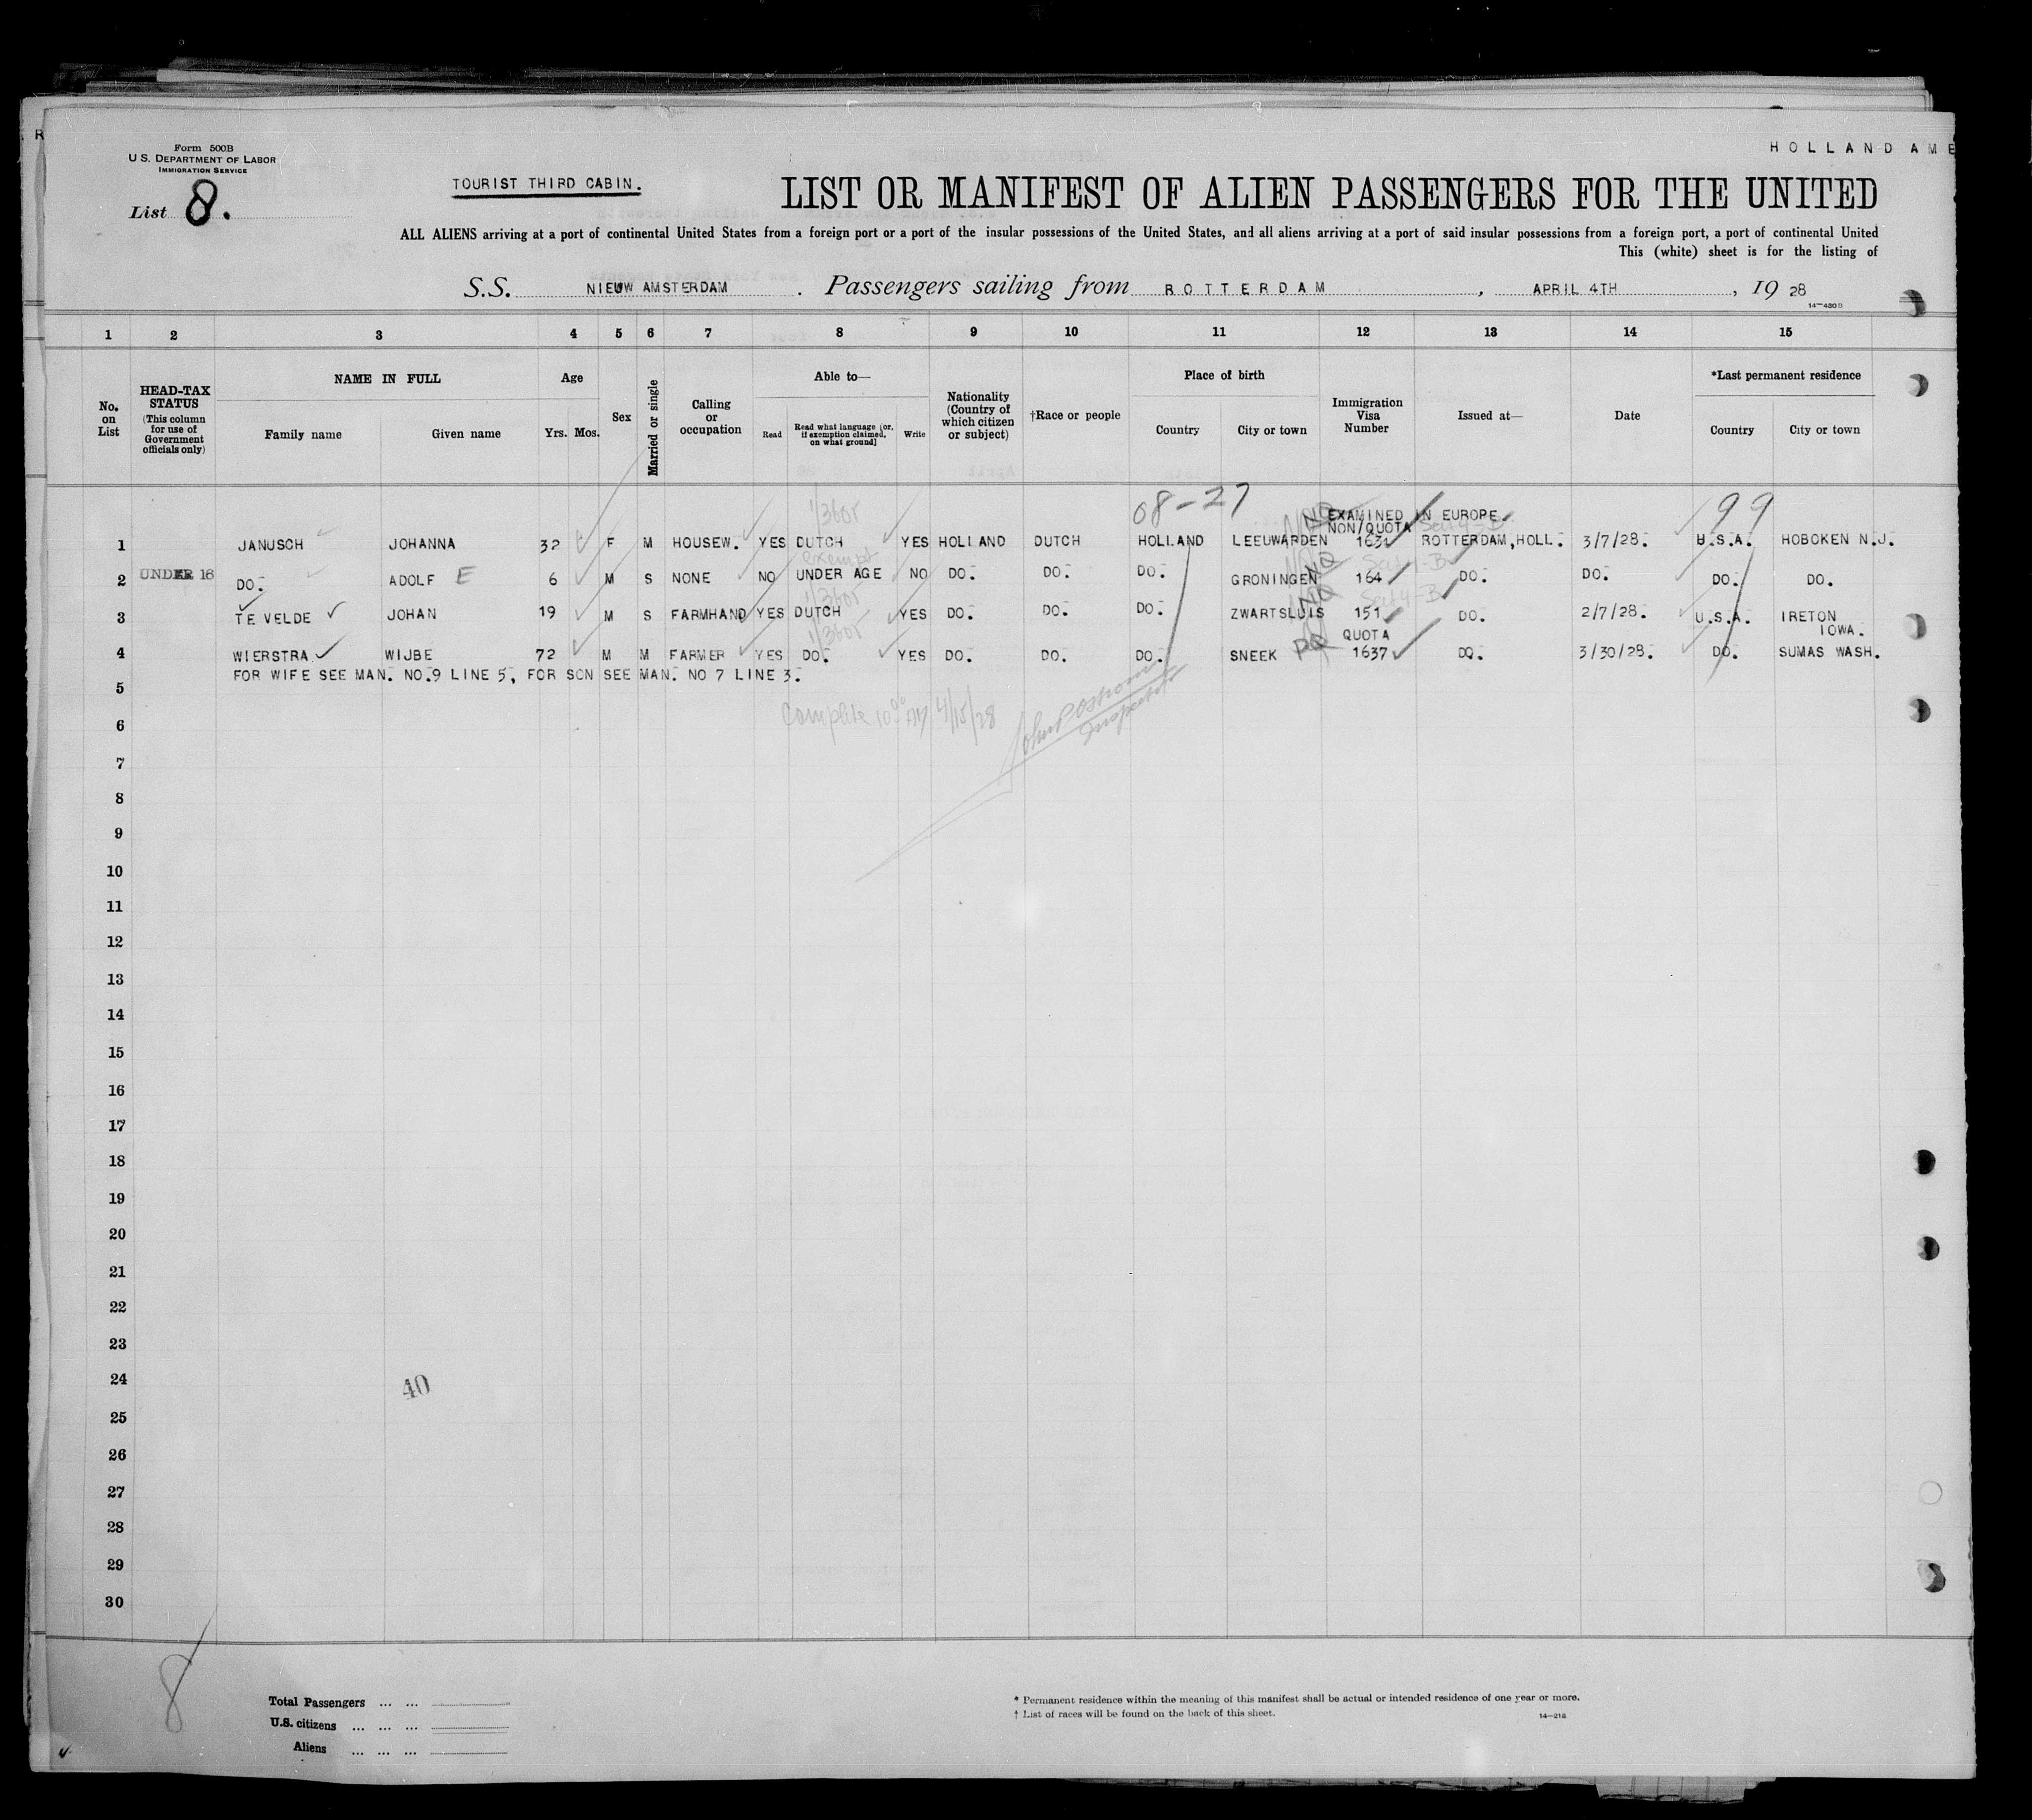 R
Form 500B
U.S. DEPARTMENT OF LABOR
IMMIGRATION SERVICE
List 8.
TOURIST THIRD CABIN.
HOLLAND AME
LIST OR MANIFEST OF ALIEN PASSENGERS FOR THE UNITED
ALL ALIENS arriving at a port of continental United States from a foreign port or a port of the insular possessions of the United States, and all aliens arriving at a port of said insular possessions from a foreign port, a port of continental United
This (white) sheet is for the listing of
S.S. NIEUW AMSTERDAM . Passengers sailing from ROTTERDAM , APRIL 4TH , 19 28
14—480 B
1 2 3 4 5 6 7 8 9 10 11 12 13 14 15
No. on List
HEAD-TAX STATUS (This column for use of Government officials only)
NAME IN FULL
Family name Given name
Age
Yrs. Mos.
Sex
Married or single
Calling or occupation
Able to—
Read Read what language [or, if exemption claimed, on what ground] Write
Nationality (Country of which citizen or subject)
†Race or people
Place of birth
Country City or town
Immigration Visa Number
Issued at—
Date
*Last permanent residence
Country City or town
08-27 99
EXAMINED IN EUROPE.
NON/QUOTA
1 JANUSCH JOHANNA 32 F M HOUSEW. YES DUTCH YES HOLLAND DUTCH HOLLAND LEEUWARDEN 163 ROTTERDAM,HOLL. 3/7/28. U.S.A. HOBOKEN N.J.
exempt
2 UNDER 16 DO. ADOLF E 6 M S NONE NO UNDER AGE NO DO. DO. DO. GRONINGEN 164 DO. DO. DO. DO.
3 TE VELDE JOHAN 19 M S FARMHAND YES DUTCH YES DO. DO. DO. ZWARTSLUIS 151 DO. 2/7/28. U.S.A. IRETON IOWA.
QUOTA
4 WIERSTRA WIJBE 72 M M FARMER YES DO. YES DO. DO. DO. SNEEK 1637 DO. 3/30/28. DO. SUMAS WASH.
FOR WIFE SEE MAN. NO.9 LINE 5, FOR SON SEE MAN. NO 7 LINE 3.
5
Complete 10 00 AM 4/15/28
Inspector
6
7
8
9
10
11
12
13
14
15
16
17
18
19
20
21
22
23
24
40
25
26
27
28
29
30
8
Total Passengers ... ...
U.S. citizens ... ... ...
Aliens ... ... ...
* Permanent residence within the meaning of this manifest shall be actual or intended residence of one year or more.
† List of races will be found on the back of this sheet.
14—218